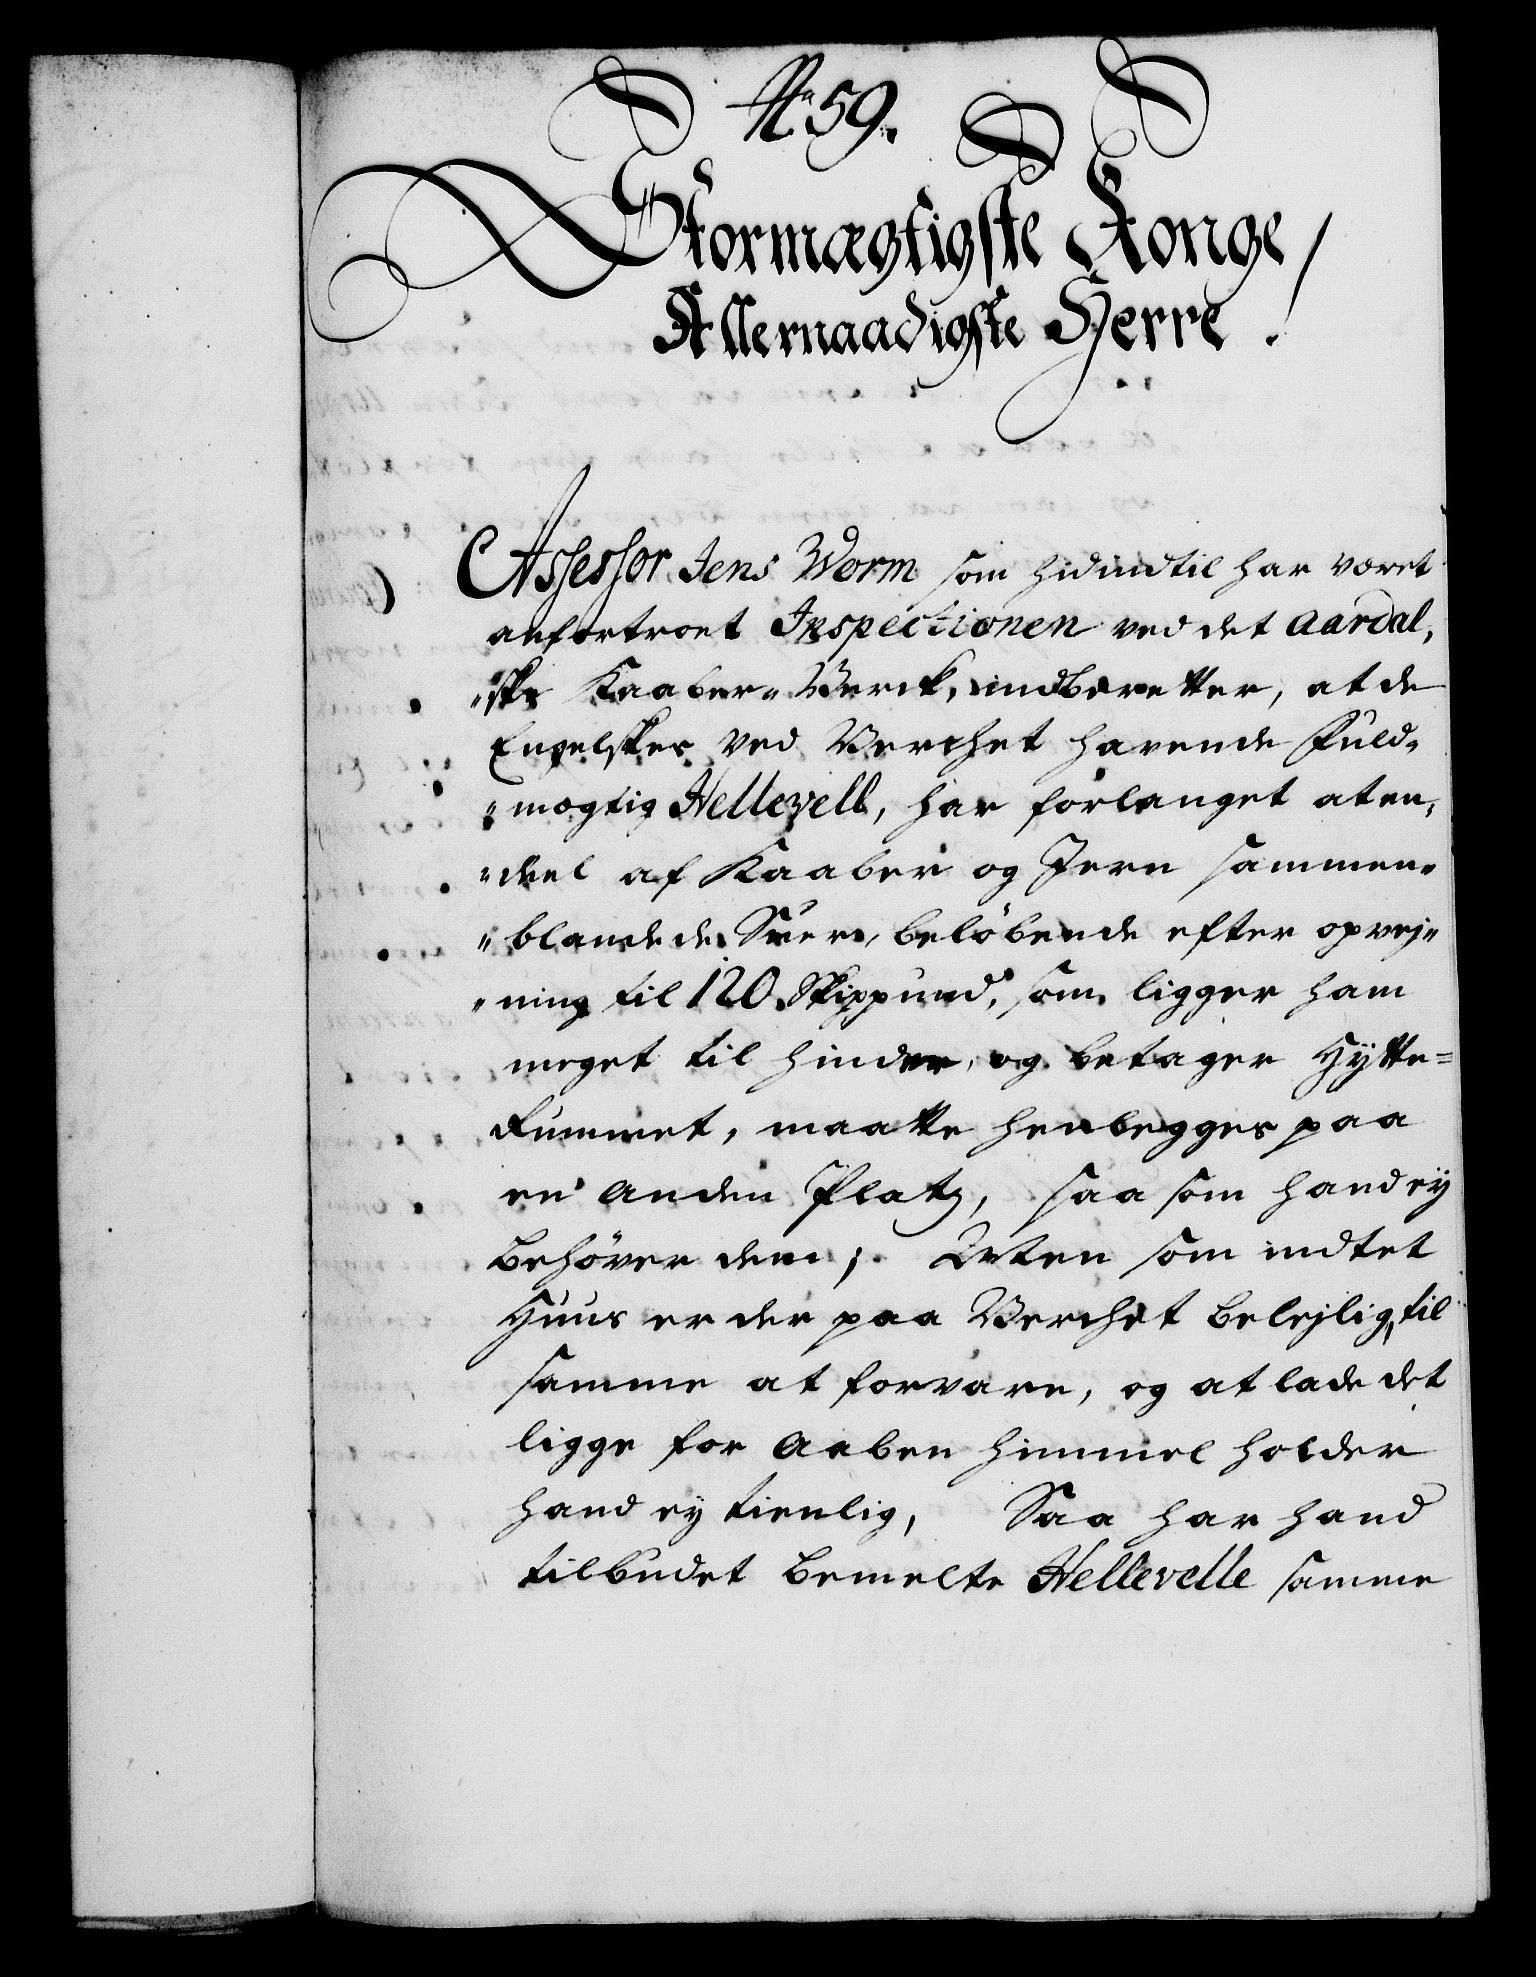 No 59.
Stormægtigste Konge
Allernaadigste Herre!
Assessor Jens Worm som hidindtil har været
anfortroet Inspectionen ved det Aardal,
"ske Kaaber-Werck, indberetter, at de
Engelskes ved Verchet havende Fuld-
"mægtig Hellevell, har forlanget at en,
"deel af Kaaber og Jern sammen"
"blandede Suer, beløbende efter opvej"
"ning til 120 Skippund, som ligger ham
meget til hinder, og betager Hytte=
Rummet, maatte henlegges paa
en anden Platz, saa som hand ey
behøver dem; Men som indtet
Huus er der paa Verchet belejlig til
samme at forvare, og at lade det
ligge for aaben himmel holder
hand ey tienlig, Saa har hand
tilbudet bemelte Hellevelle samme